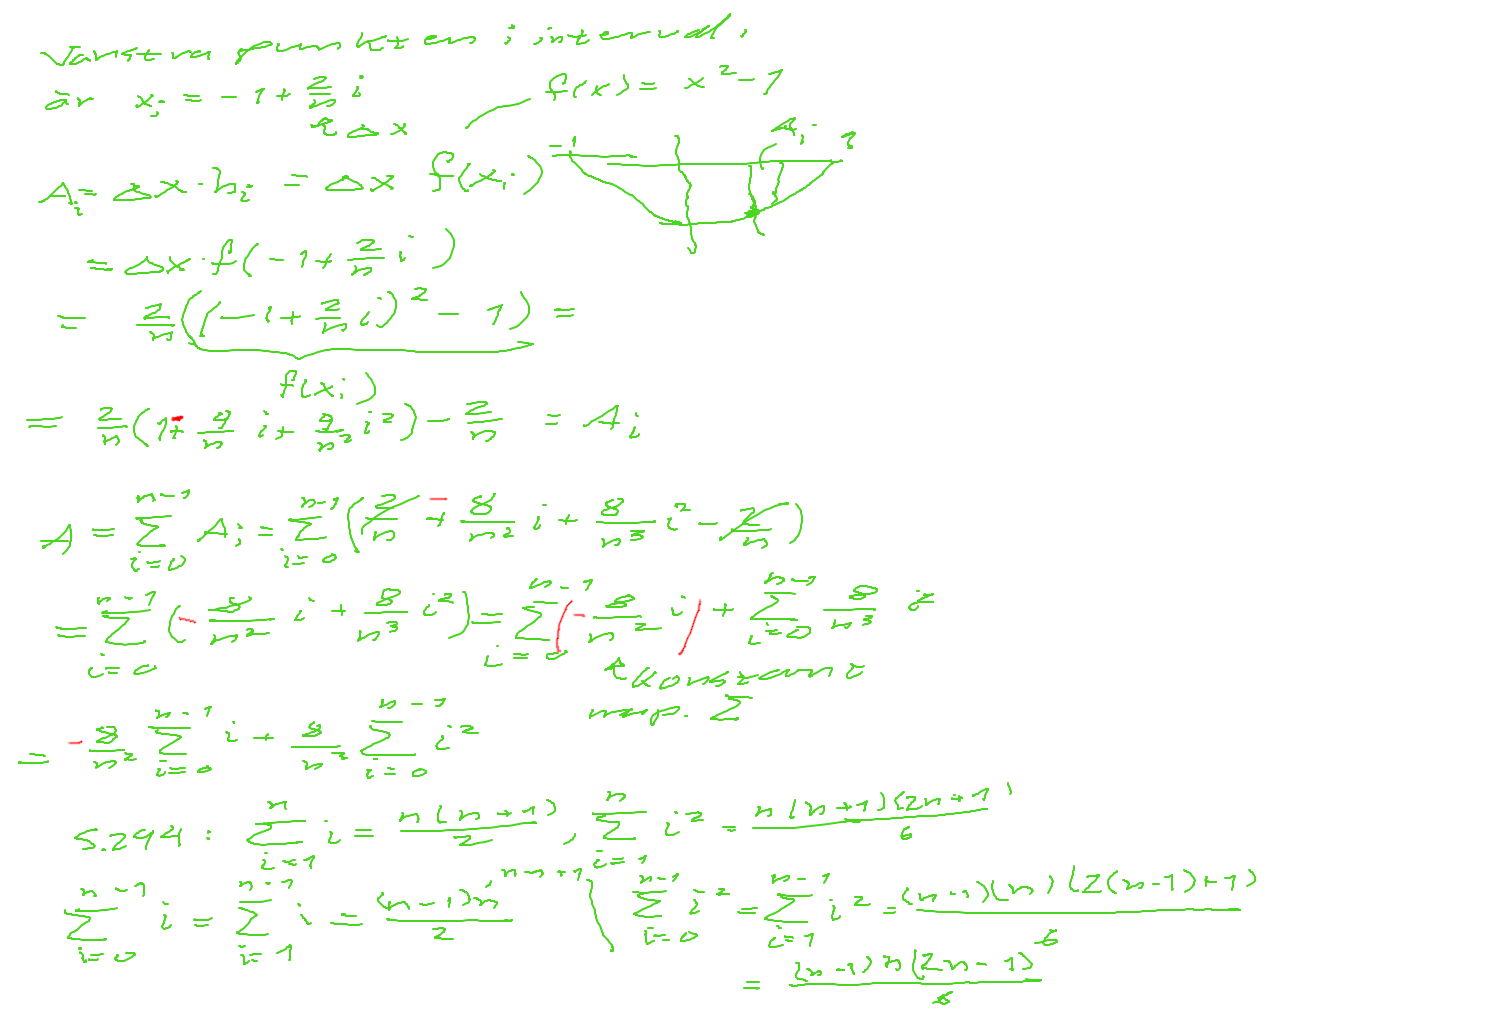 Vänstra punkten i interval i
är x_i = -1 + 2/n i f(x) = x² - 1
↖ Δx
-1 A_i 1
A_i = Δx · h_i = Δx f(x_i)
= Δx · f(-1 + 2/n i)
= 2/n ((-1 + 2/n i)² - 1) =
f(x_i)
= 2/n (1 - 4/n i + 4/n² i²) - 2/n = A_i
A = Σ_{i=0}^{n-1} A_i = Σ_{i=0}^{n-1} (2/n - 8/n² i + 8/n³ i² - 2/n)
= Σ_{i=0}^{n-1} (- 8/n² i + 8/n³ i²) = Σ_{i=0}^{n-1} (- 8/n² i) + Σ_{i=0}^{n-1} 8/n³ i²
↖ konstant
map. Σ
= - 8/n² Σ_{i=0}^{n-1} i + 8/n³ Σ_{i=0}^{n-1} i²
S.294: Σ_{i=1}^{n} i = n(n+1)/2, Σ_{i=1}^{n} i² = n(n+1)(2n+1)/6
Σ_{i=0}^{n-1} i = Σ_{i=1}^{n-1} i = (n-1)n/2 n-1+1 Σ_{i=0}^{n-1} i² = Σ_{i=1}^{n-1} i² = (n-1)(n)(2(n-1)+1)/6
= (n-1)n(2n-1)/6